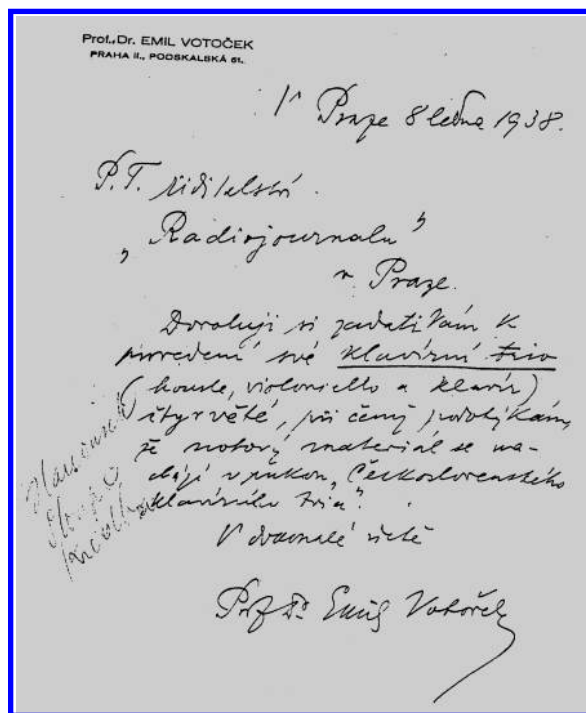 Prof. Dr. EMIL VOTOČEK
PRAHA II., PODSKALSKÁ 61.
V Praze 8 ledna 1938.
P.T. ředitelství
„Radiojournalu"
v Praze.
Dovoluji si zadati Vám k
provedení své klavírní trio
(housle, violoncello a klavír)
čtyrvěté, při čemž podotýkám,
že notový materiál se na-
chází v rukou „Československého
klavírního tria".
V dokonalé úctě
Prof Dr Emil Votoček